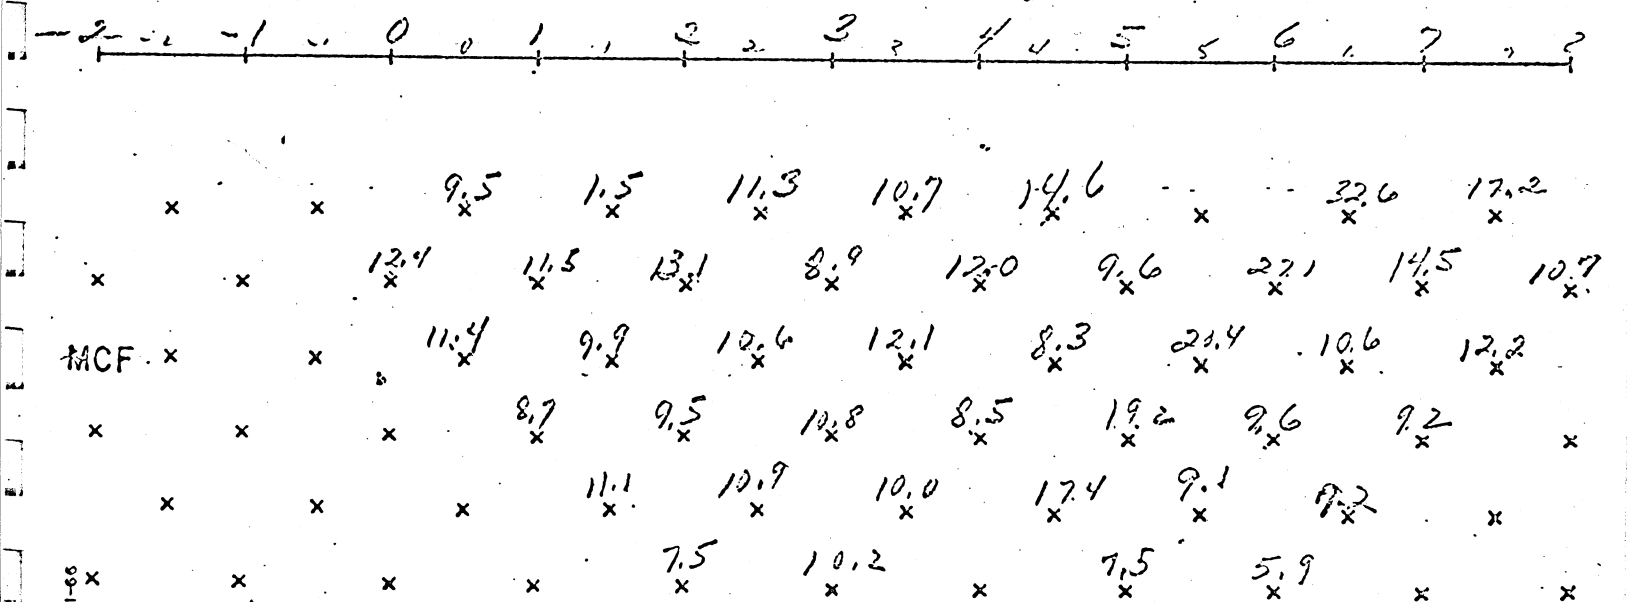 -2 -1 0 0 1 .1 2 2 3 3 4 4 5 5 6 7
9.5 1.5 11.3 10.7 14.6 - - - - 32.6 17.2
12.4 11.5 13.1 8.9 12.0 9.6 27.1 14.5 10.7
MCF 11.4 9.9 10.6 12.1 8.3 20.4 10.6 12.2
8.7 9.5 10.8 8.5 19.2 9.6 9.2
11.1 10.9 10.0 17.4 9.1
7.5 10.2 7.5 5.9